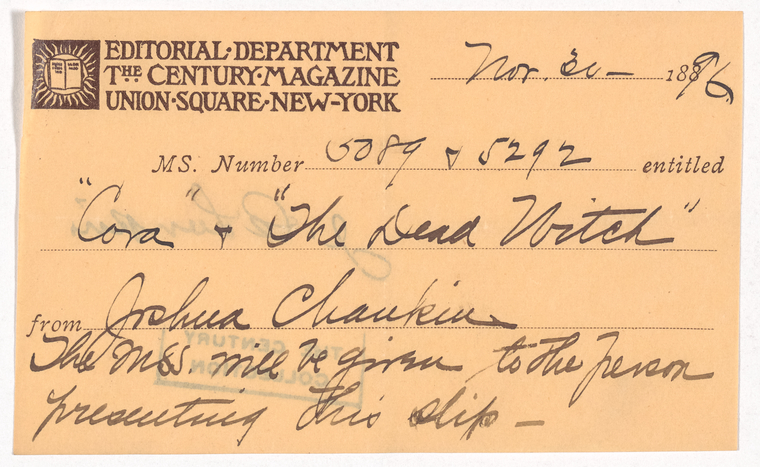 EDITORIAL·DEPARTMENT
THE CENTURY·MAGAZINE
UNION·SQUARE·NEW-YORK
Nov. 30 — 1896
MS. Number 5089 & 5292 entitled
"Cora" & "The Dead Witch"
from Joshua Chankin
The MSS will be given to the person
presenting this slip —
THE CENTURY
COLLECTION